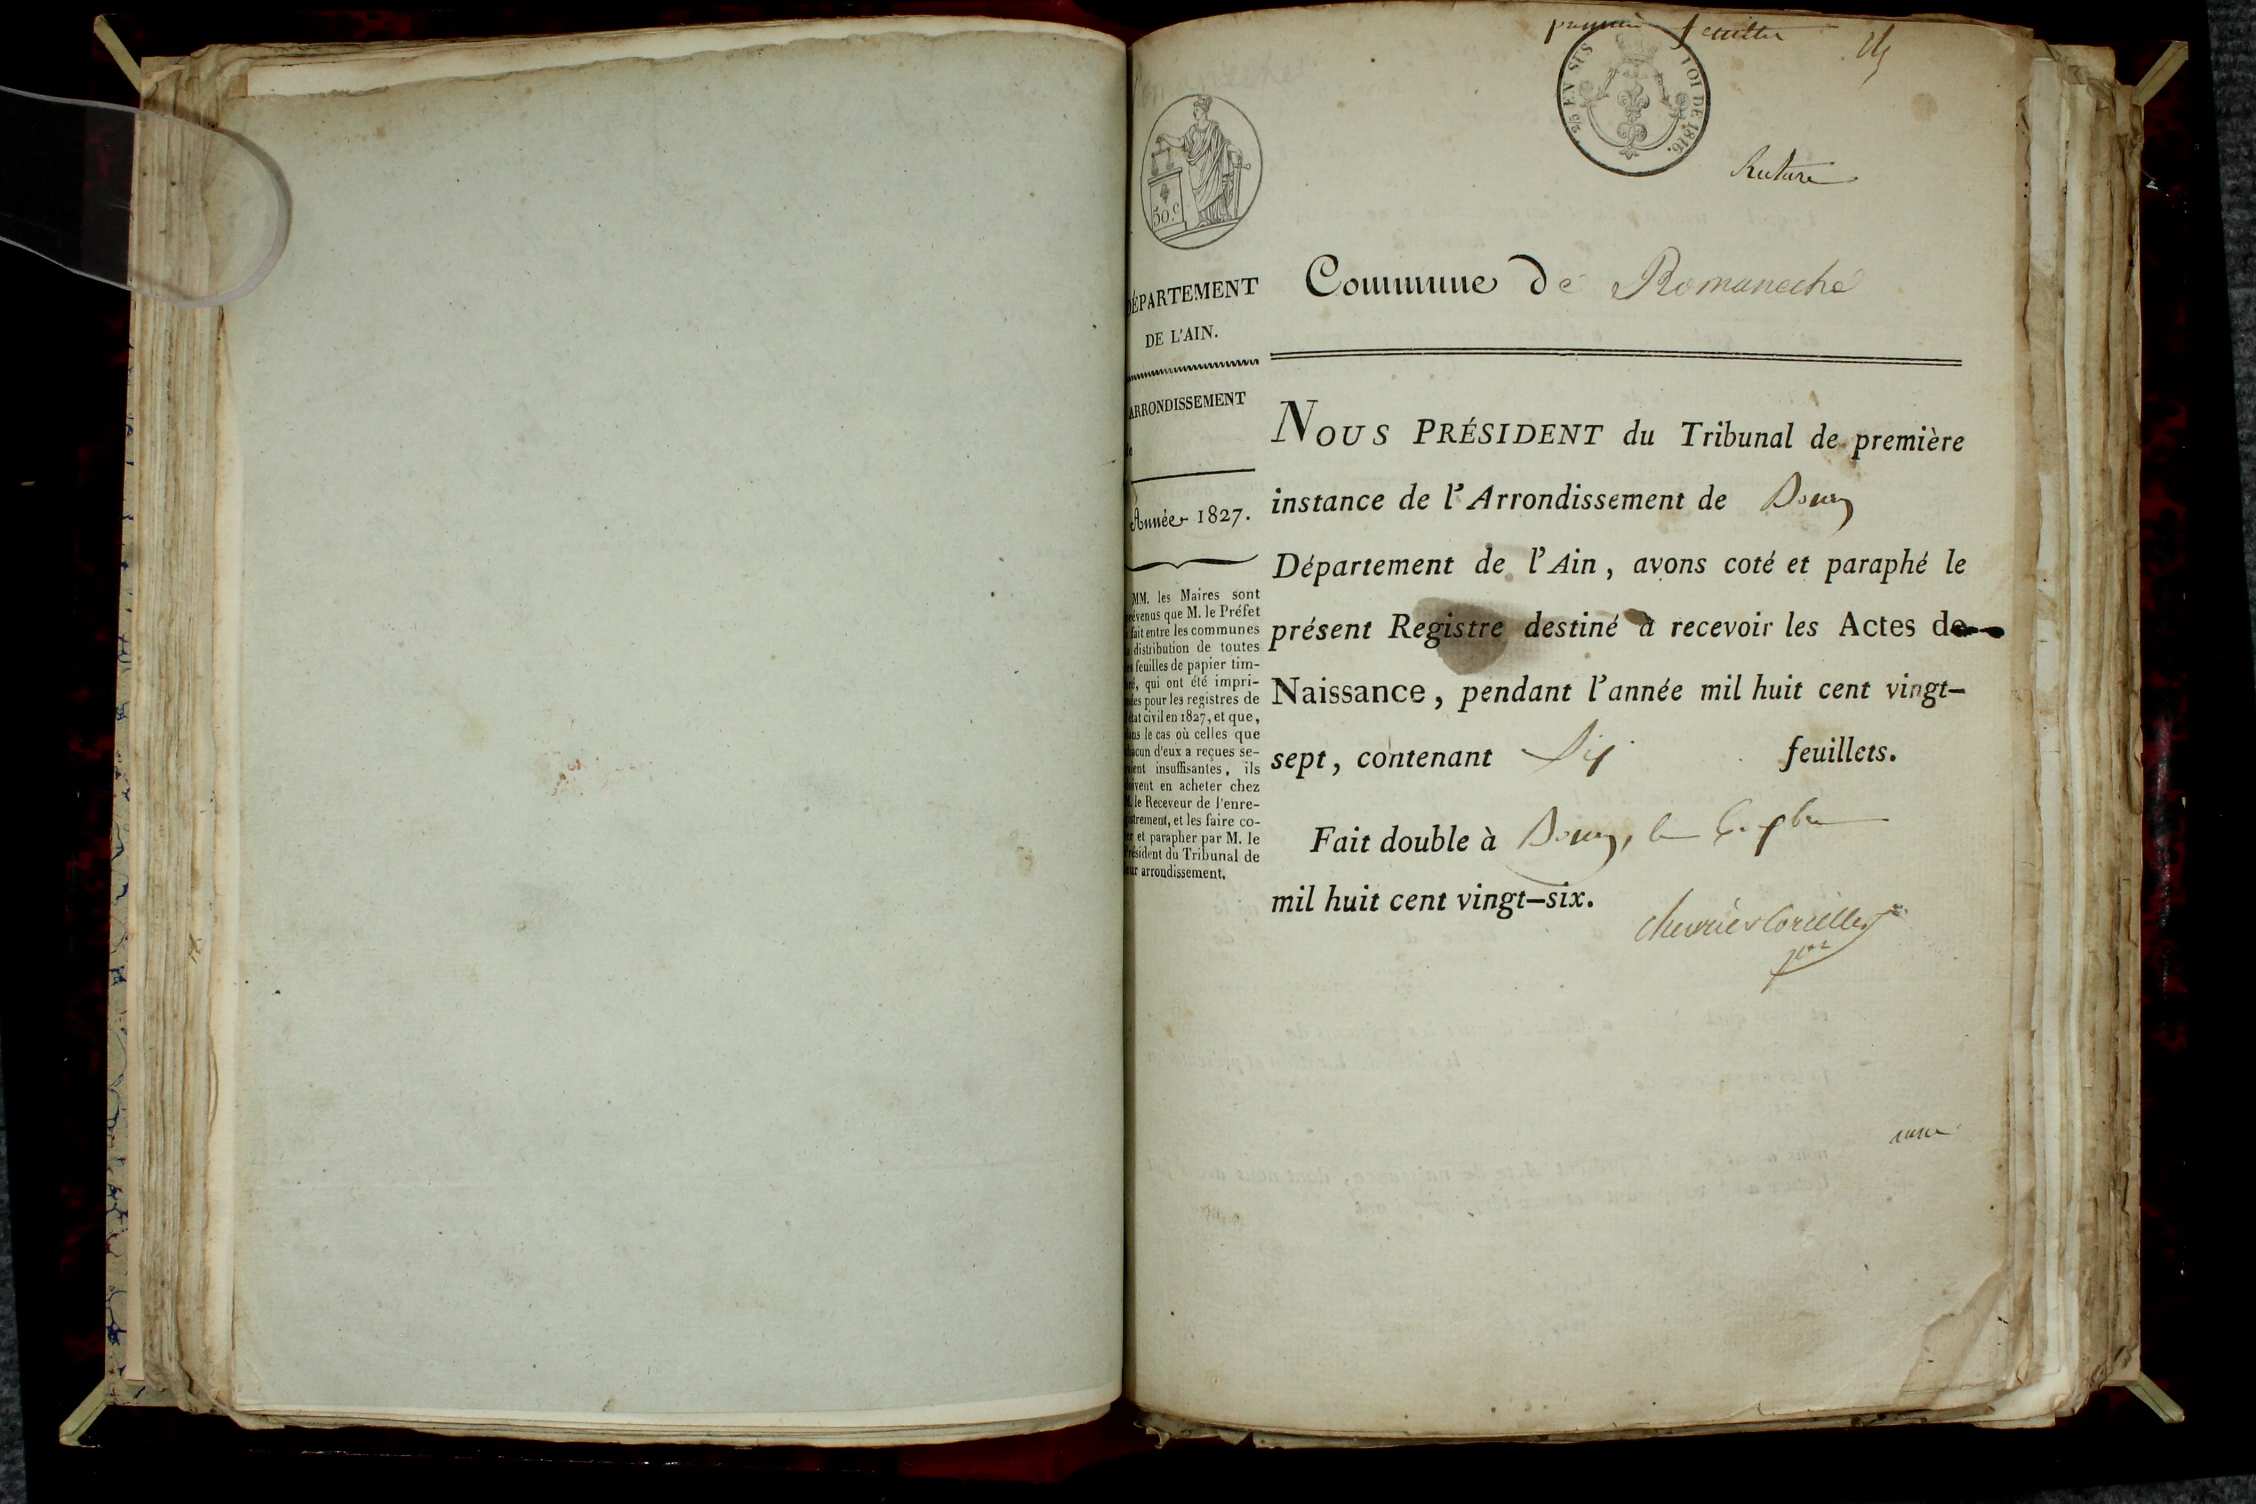 premier feuillet
2/5 EN SUS LOI DE 1816.
50.c
Commune de Romaneche
DÉPARTEMENT
DE L'AIN.
ARRONDISSEMENT
de
Année 1827.
MM. les Maires sont
prévenus que M. le Préfet
a fait entre les communes
la distribution de toutes
les feuilles de papier tim-
bré, qui ont été impri-
mées pour les registres de
l'état civil en 1827, et que,
dans le cas où celles que
chacun d'eux a reçues se-
raient insuffisantes, ils
doivent en acheter chez
M. le Receveur de l'enre-
gistrement, et les faire co-
ter et parapher par M. le
Président du Tribunal de
leur arrondissement.
NOUS PRÉSIDENT du Tribunal de première
instance de l'Arrondissement de Bourg
Département de l'Ain, avons coté et paraphé le
présent Registre destiné à recevoir les Actes de
Naissance, pendant l'année mil huit cent vingt-
sept, contenant Six feuillets.
Fait double à Bourg, le
mil huit cent vingt-six.